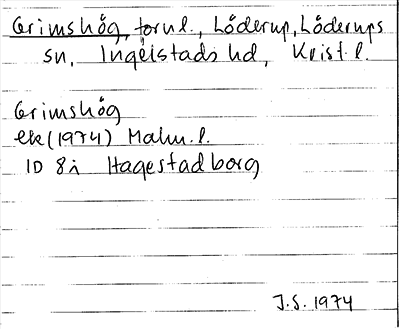 Grimshög, fornl., Löderup, Löderups
sn, Ingelstads hd, Krist. l.
Grimshög
ek (1974) Malm. l.
1D 8i Hagestadborg
J.S. 1974